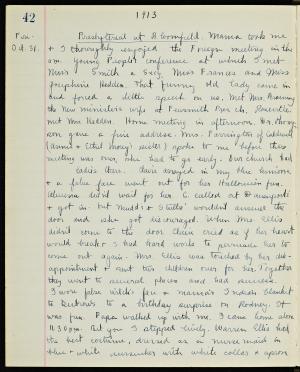 42
1913
Fri.
Oct. 31.
Presbyterial at Bloomfield. Mama took me
+ I thoroughly enjoyed the Foreign meeting in the
a.m. Young People's conference at which I met
Miss Smith a Secy. Miss Frances and Miss
Josephine Hedden. That funny old lady came in
and forced a little speech on us. Met Mrs.
the New minister's wife at
met Mrs Hedden. Home meeting in afternoon. Dr.
gave a fine address. Mrs. Farrington of Caldwell
(Annie + Ethel sister) spoke to me before this
meeting was over, she had to go early. Our church had
ladies there. Clara arrayed in my blue kimono
+ a false face went out for her Hallowe'en fun.
wait for her. C. called at
+ got in but wouldn't answer the
door and she got discouraged. When Mrs. Ellis
didn't come to the door Clara cried as if her heart
would break + I had hard work to persuade her to
come out again. Mrs. Ellis was touched by her dis-
appointment + sent two children over for her. Together
they went to several places and had success.
I wore false witch's face + mama's Indian blanket
to to a birthday surprise on Rodney. It
was fun. Papa walked up with me. I came home alone
11.30 p.m. Bet you I stepped lively. Warren Ellis had
the best costume, dressed as a nursemaid in
blue + white with white collar + apron